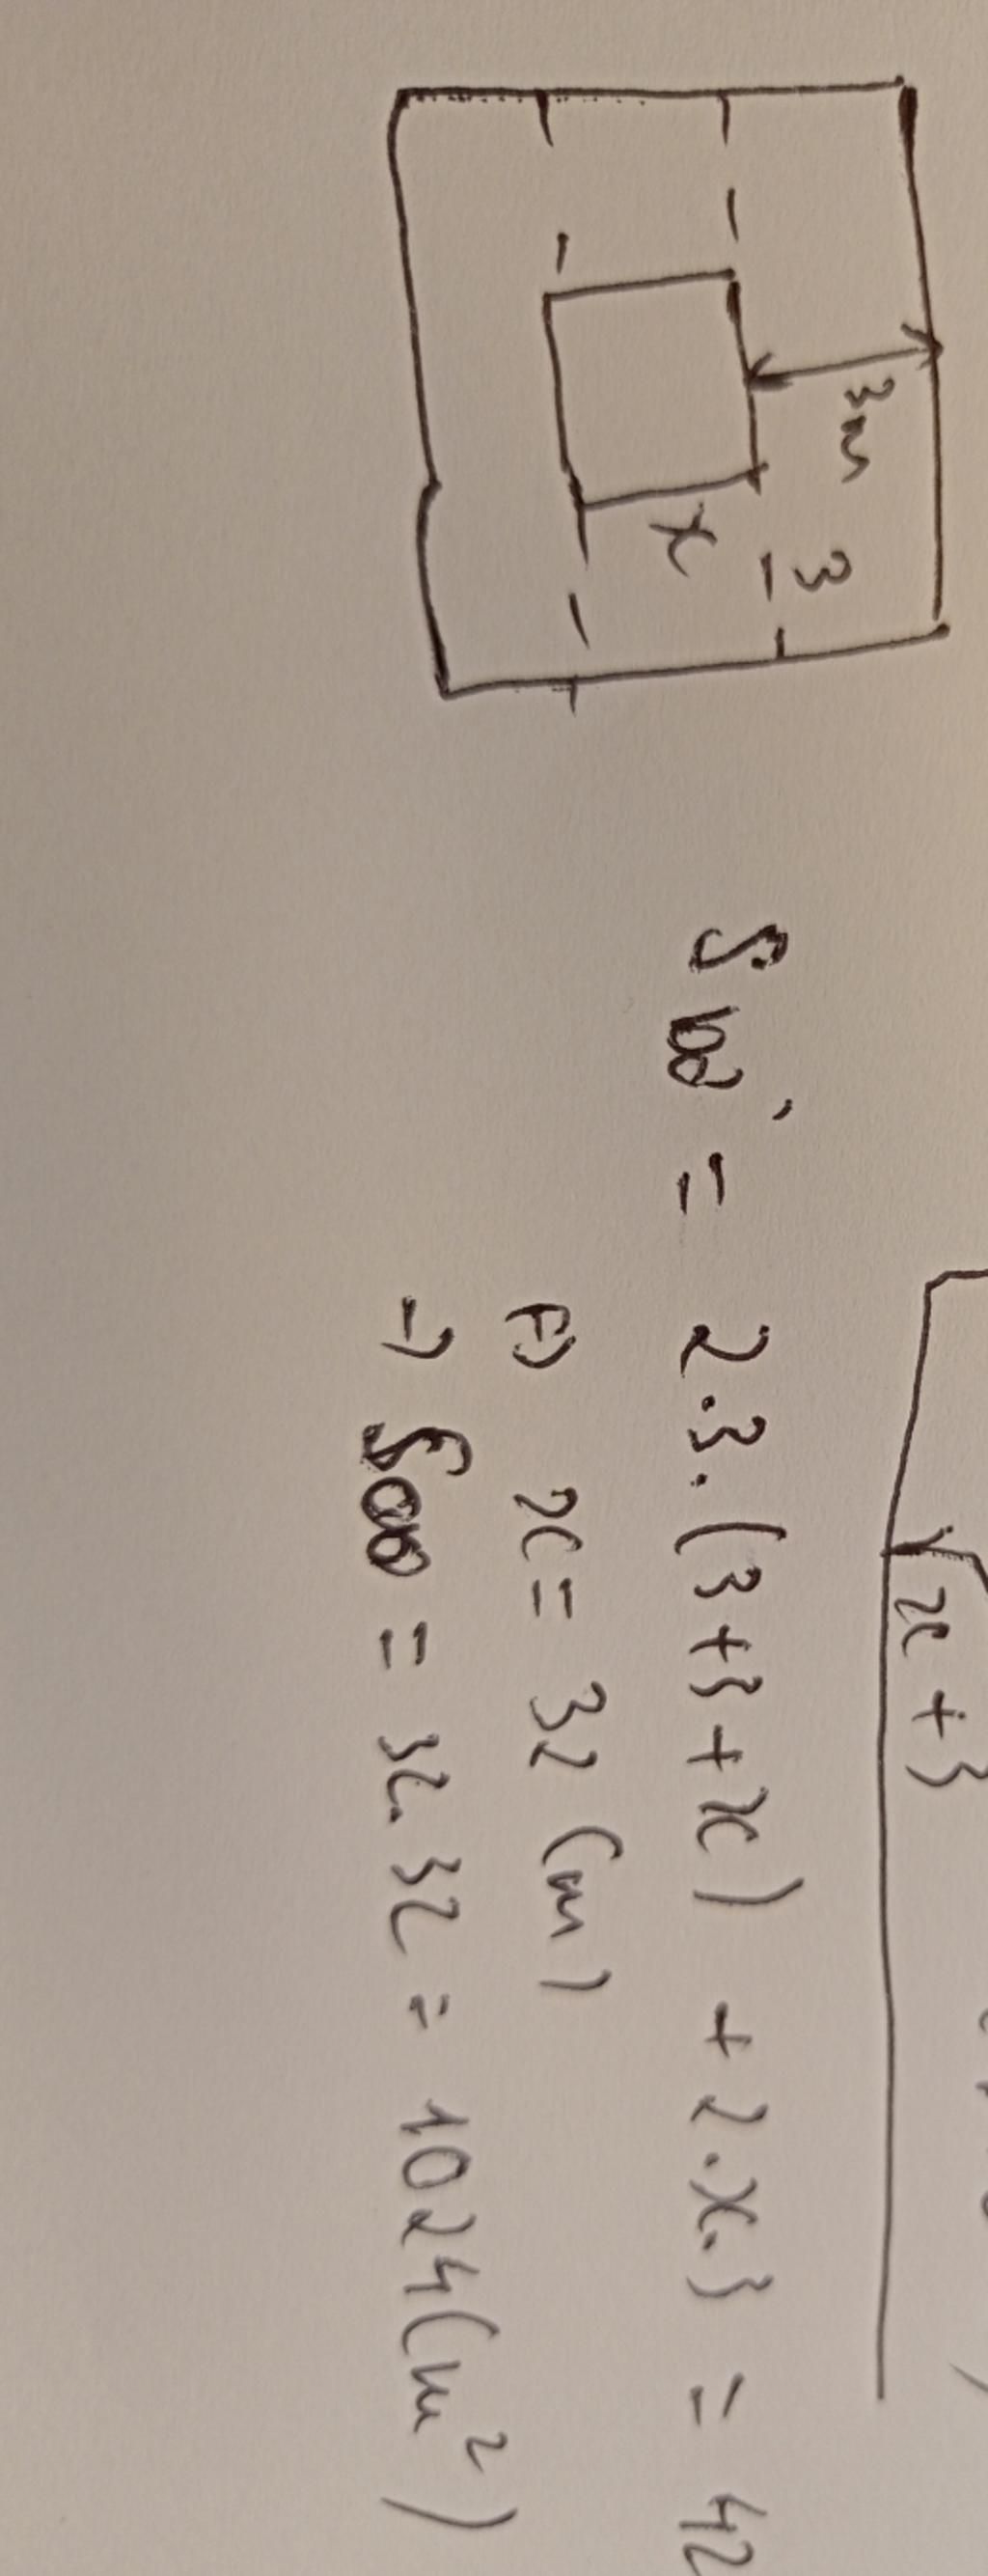 x + 3
3m
3
x
S bờ = 2.3.(3+3+x) + 2.x.3 = 42
(=) x = 32 (m)
→ S ao = 32.32 = 1024(m²)